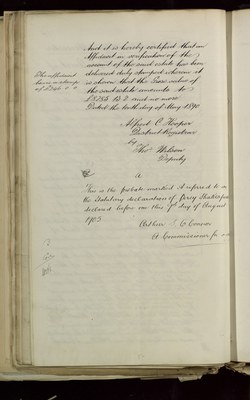 And it is hereby certified that an
Affidavit in verification of the
account of the said estate has been
delivered duly stamped wherein it
is shewn that the Gross value of
the said estate amounts to
£8784 13 2 and no more
Dated the tenth day of May 1890
The affidavit
bears a stamp
of
Alfred C. Hooper
District Registrar
by
Thos Wilson
Deputy
A
This is the probate marked A referred to in
the Statutory declaration of Percy Shakespear
declared before me this day of August
1903
Arthur Connor
A Commissioner for